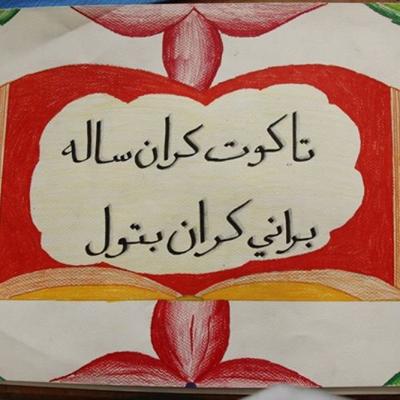 تاكوت كران ساله
براني كران بتول